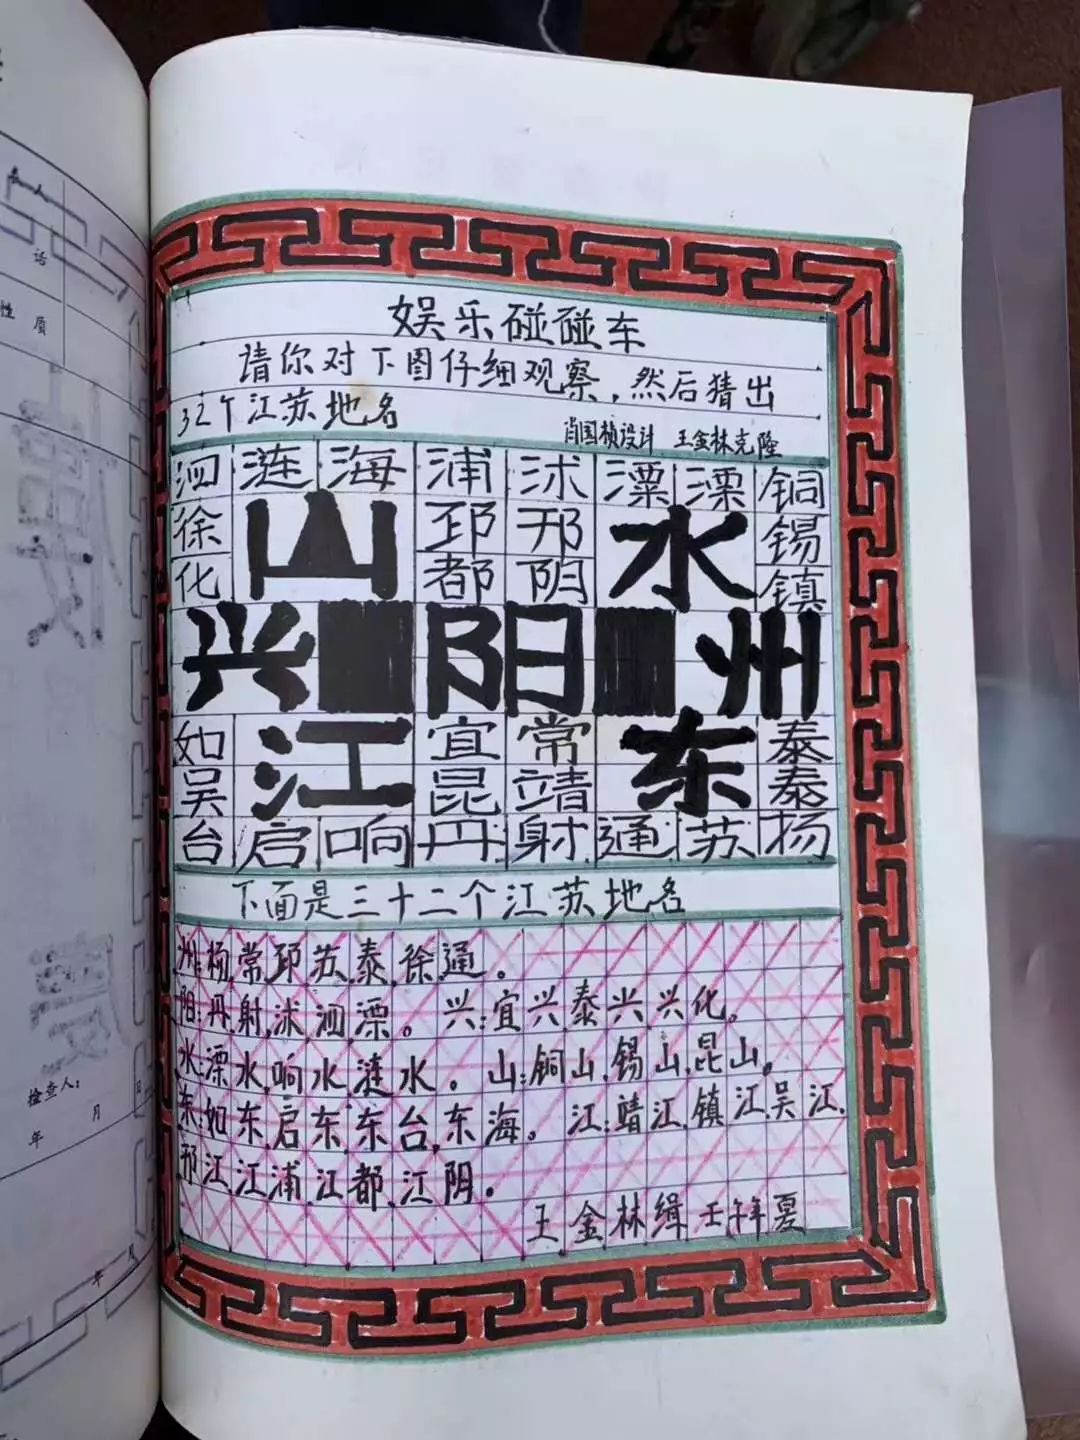 娱乐碰碰车
请你对下图仔细观察,然后猜出
32个江苏地名
肖国桢设计 王金林克隆
泗涟海浦沭溧溧铜
徐山邳邗水锡
化都阴镇
兴阳州
如江宜常东泰
吴昆靖泰
台启响丹射通苏扬
下面是三十二个江苏地名
州:杨,常,邳,苏,泰,徐,通。
阳:丹,射,沭,泗,溧。兴:宜兴,泰兴,兴化。
水:溧水,响水,涟水。山:铜山,锡山,昆山。
东:如东,启东,东台,东海。江:靖江,镇江,吴江,
邗江,江浦,江都,江阴。
王金林缉 壬午年夏
性质
话
检查人:
年 月 日
年 月